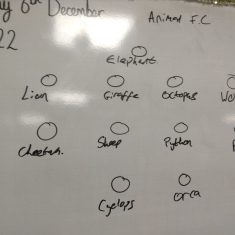 y 6th December
Animal F.C
22
Elephant
Lion Giraffe Octopus
Cheetah. Sheep Python
Cyclops orca